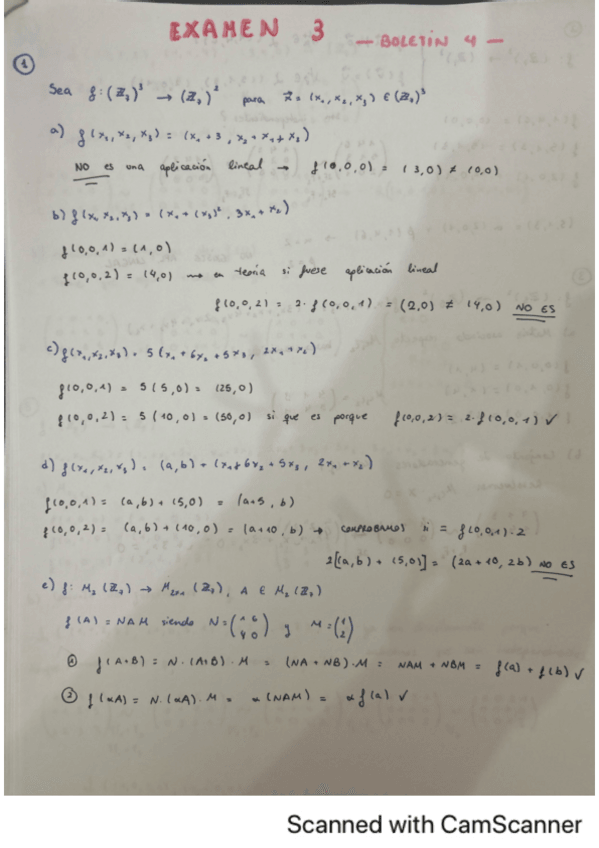 EXAMEN 3 - BOLETÍN 4 -
①
Sea f: (Z₇)³ → (Z₇)² para x⃗ = (x₁, x₂, x₃) ∈ (Z₇)³
a) f(x₁, x₂, x₃) = (x₁ + 3, x₂ + x₁ + x₃)
NO es una aplicación lineal → f(0,0,0) = (3,0) ≠ (0,0)
b) f(x₁ x₂, x₃) = (x₁ + (x₃)², 3x₁ + x₂)
f(0,0,1) = (1,0)
f(0,0,2) = (4,0) → en teoría si fuese aplicación lineal
f(0,0,2) = 2·f(0,0,1) = (2,0) ≠ (4,0) NO ES
c) f(x₁, x₂, x₃) = 5(x₁ + 6x₂ + 5x₃, 2x₁ + x₂)
f(0,0,1) = 5(5,0) = (25,0)
f(0,0,2) = 5(10,0) = (50,0) si que es porque f(0,0,2) = 2·f(0,0,1) ✓
d) f(x₁, x₂, x₃) = (a,b) + (x₁ + 6x₂ + 5x₃, 2x₁ + x₂)
f(0,0,1) = (a,b) + (5,0) = (a+5, b)
f(0,0,2) = (a,b) + (10,0) = (a+10, b) → COMPROBAMOS si = f(0,0,1)·2
2[(a,b) + (5,0)] = (2a+10, 2b) NO ES
e) f: M₂(Z₇) → M₂ₓ₁(Z₇), A ∈ M₂(Z₇)
f(A) = NAM siendo N = (1 6 / 4 0) y M = (1 / 2)
① f(A+B) = N·(A+B)·M = (NA + NB)·M = NAM + NBM = f(a) + f(b) ✓
② f(αA) = N·(αA)·M = α(NAM) = αf(a) ✓
Scanned with CamScanner